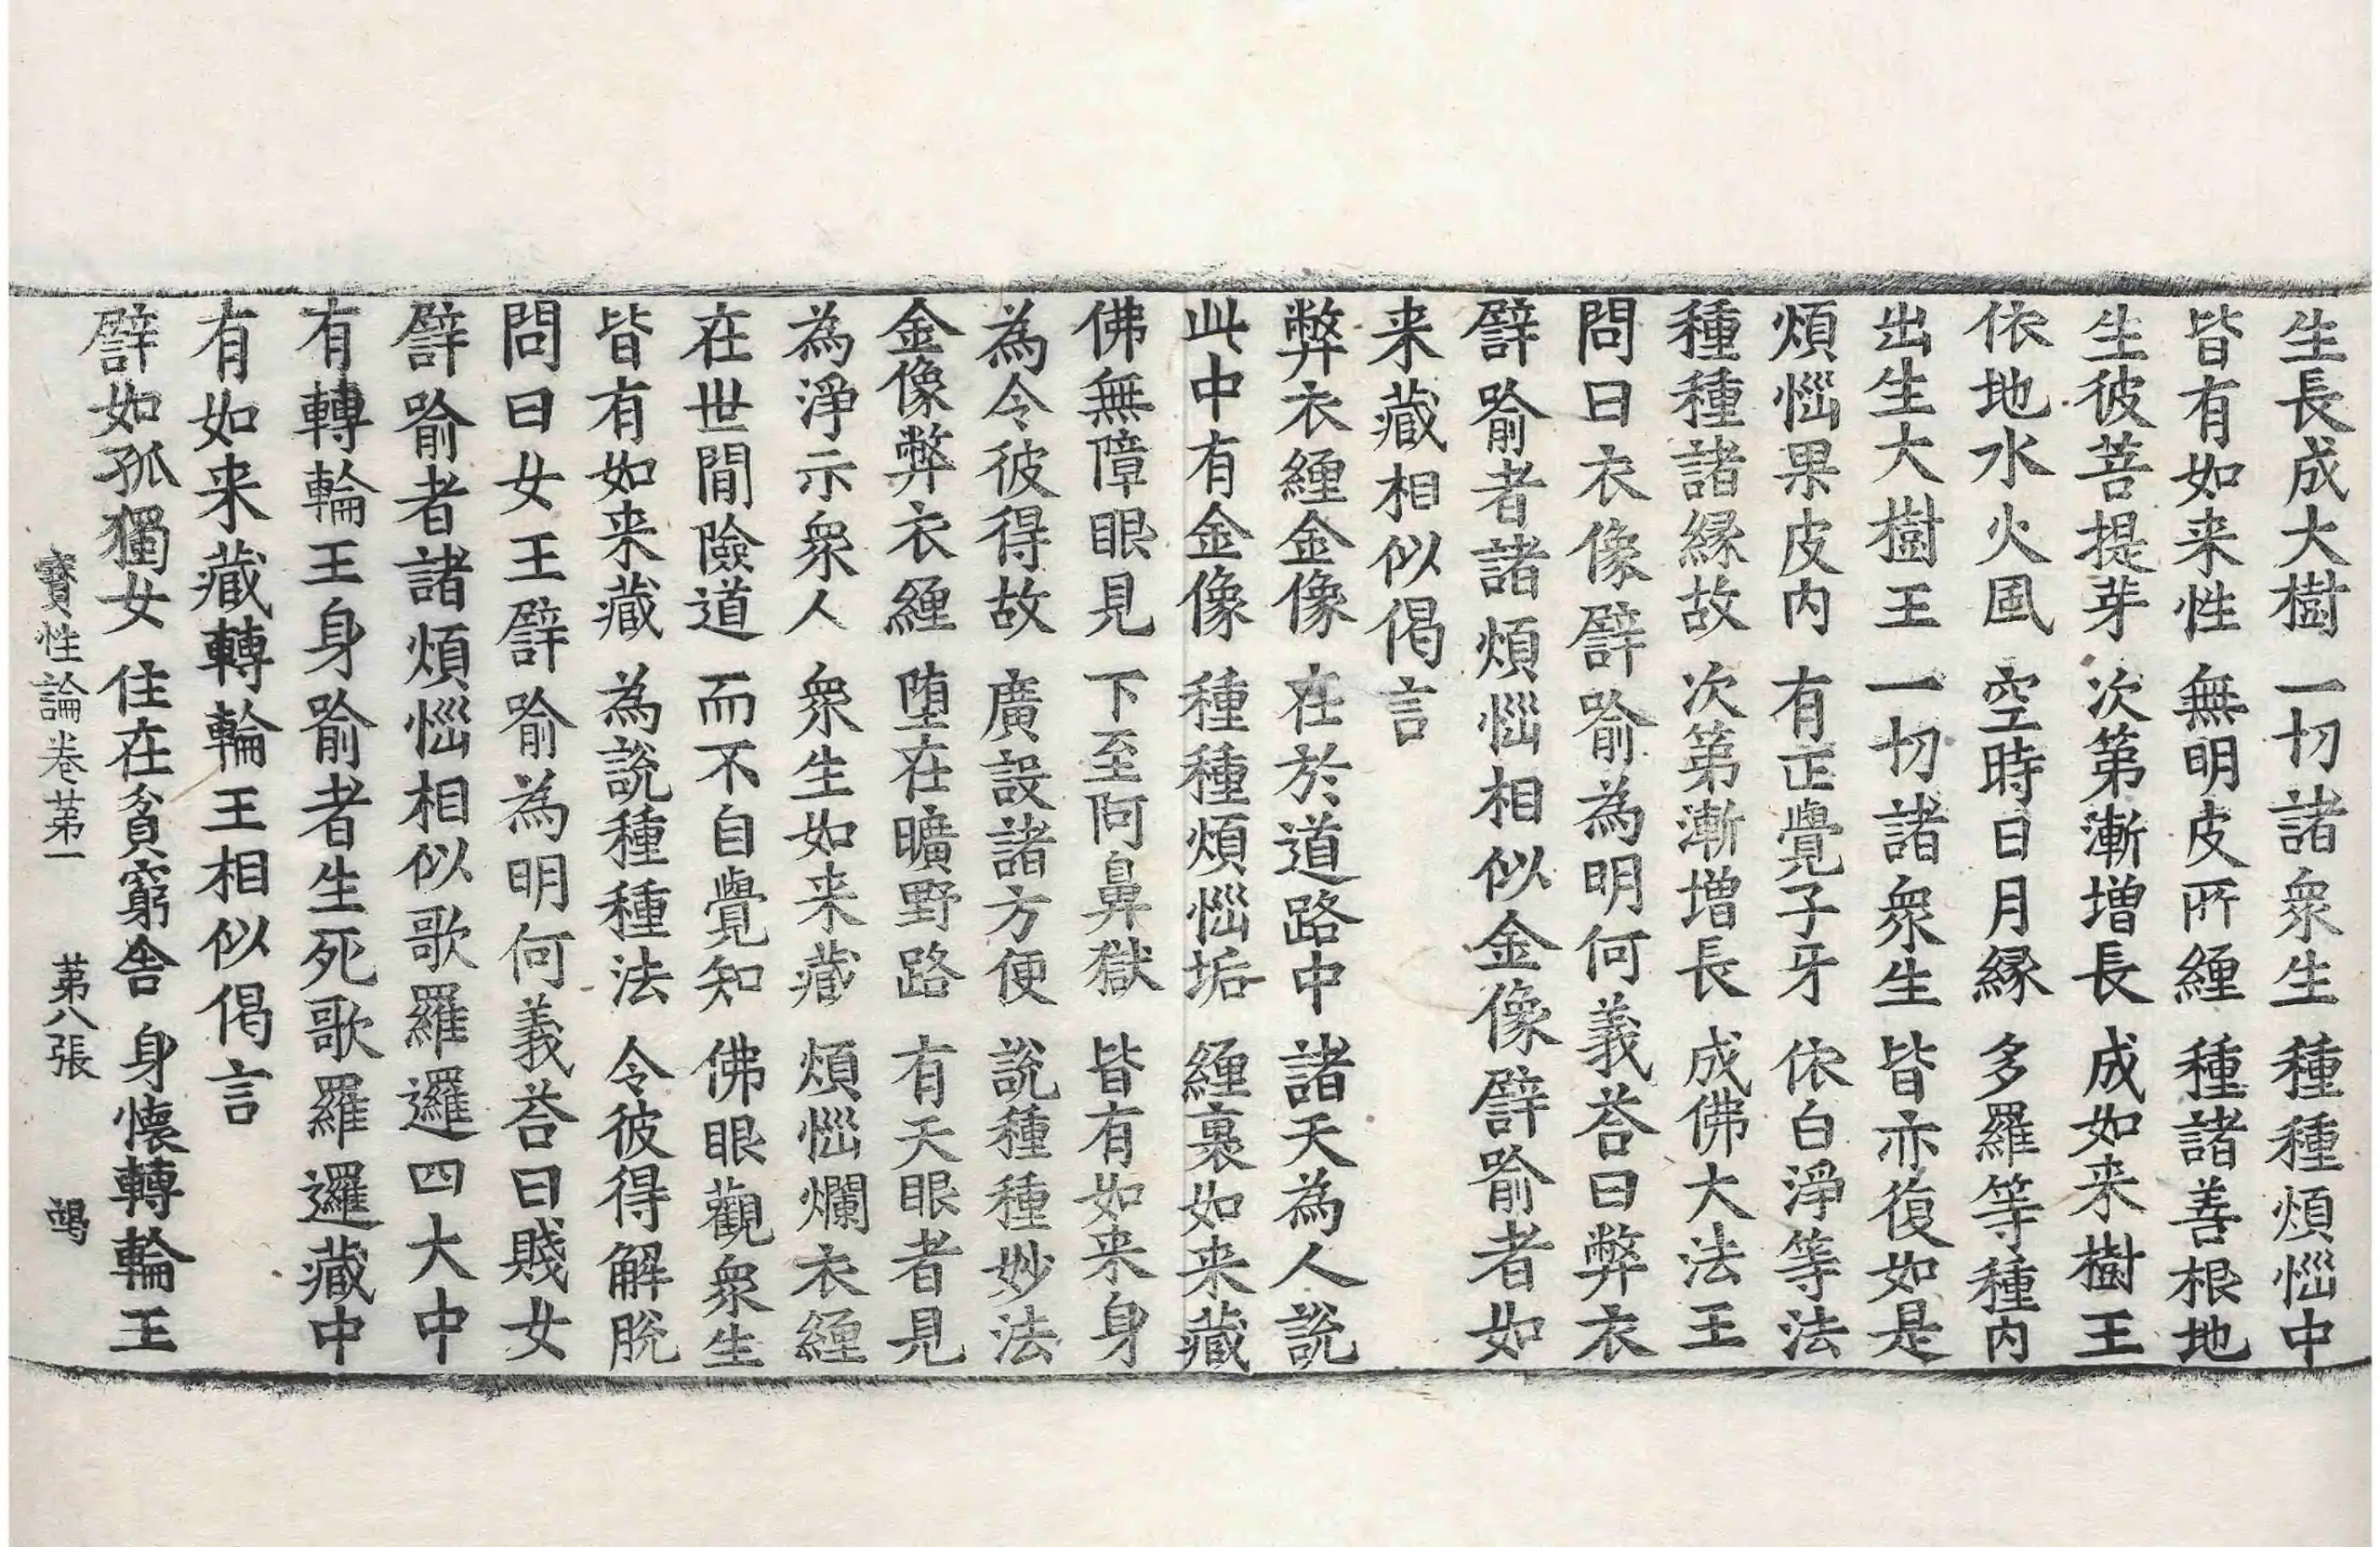 生長成大樹　一切諸衆生　種種煩惱中
皆有如来性　無明皮所纏　種諸善根地
生彼菩提芽　次第漸增長　成如来樹王
依地水火風　空時日月緣　多羅等種內
出生大樹王　一切諸衆生　皆亦復如是
煩惱果皮內　有正覺子牙　依白淨等法
種種諸緣故　次第漸增長　成佛大法王
問曰衣像譬喻為明何義荅曰弊衣
譬喻者諸煩惱相似金像譬喻者如
来藏相似偈言
弊衣纏金像　在於道路中　諸天為人說
此中有金像　種種煩惱垢　纏裹如来藏
佛無障眼見　下至阿鼻獄　皆有如来身
為令彼得故　廣設諸方便　說種種妙法
金像弊衣纏　墮在曠野路　有天眼者見
為淨示衆人　衆生如来藏　煩惱爛衣纏
在世間險道　而不自覺知　佛眼觀衆生
皆有如来藏　為說種種法　令彼得解脫
問曰女王譬喻為明何義荅曰賤女
譬喻者諸煩惱相似歌羅邏四大中
有轉輪王身喻者生死歌羅邏藏中
有如来藏轉輪王相似偈言
譬如孤獨女　住在貧窮舍　身懷轉輪王
寶性論卷第一　第八張